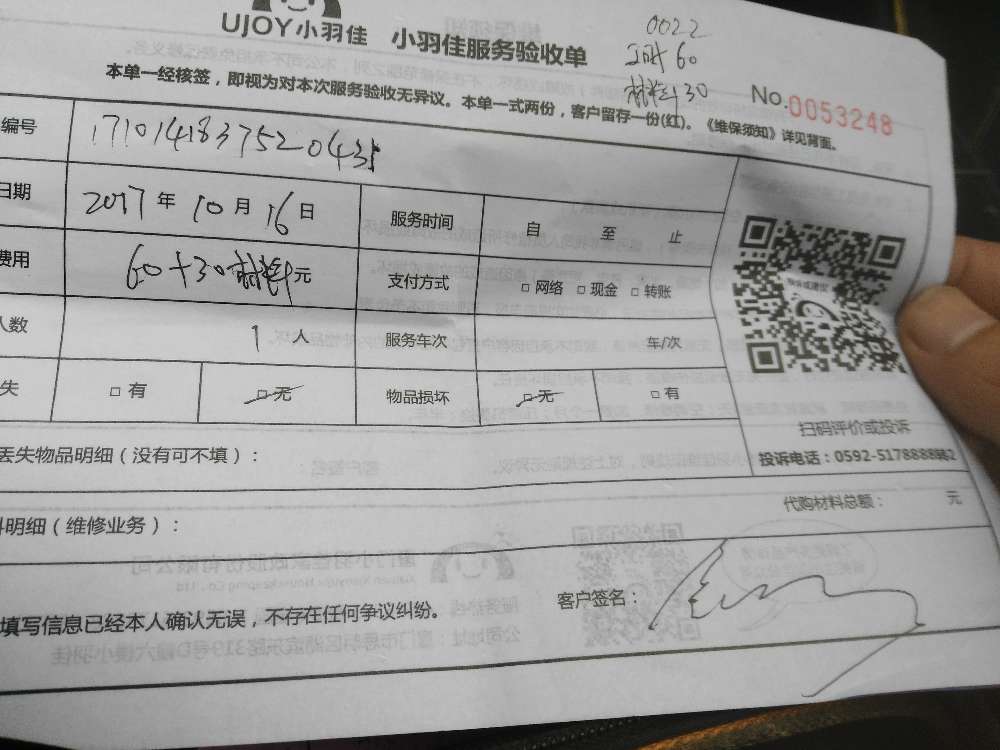 UJOY小羽佳 小羽佳服务验收单
0022
工时 60
材料 30
本单一经核签，即视为对本次服务验收无异议。本单一式两份，客户留存一份(红)。《维保须知》详见背面。
No.0053248
编号
日期 2017 年 10 月 16 日 服务时间 自 至 止
费用 60+30材料 元 支付方式 □ 网络 □ 现金 □ 转账
人数 1 人 服务车次 车/次
失 □ 有 □ 无 物品损坏 □ 无 □ 有
扫码评价或投诉
丢失物品明细（没有可不填）：
投诉电话：0592-5178888转2
代购材料总额： 元
料明细（维修业务）：
客户签名：
填写信息已经本人确认无误，不存在任何争议纠纷。